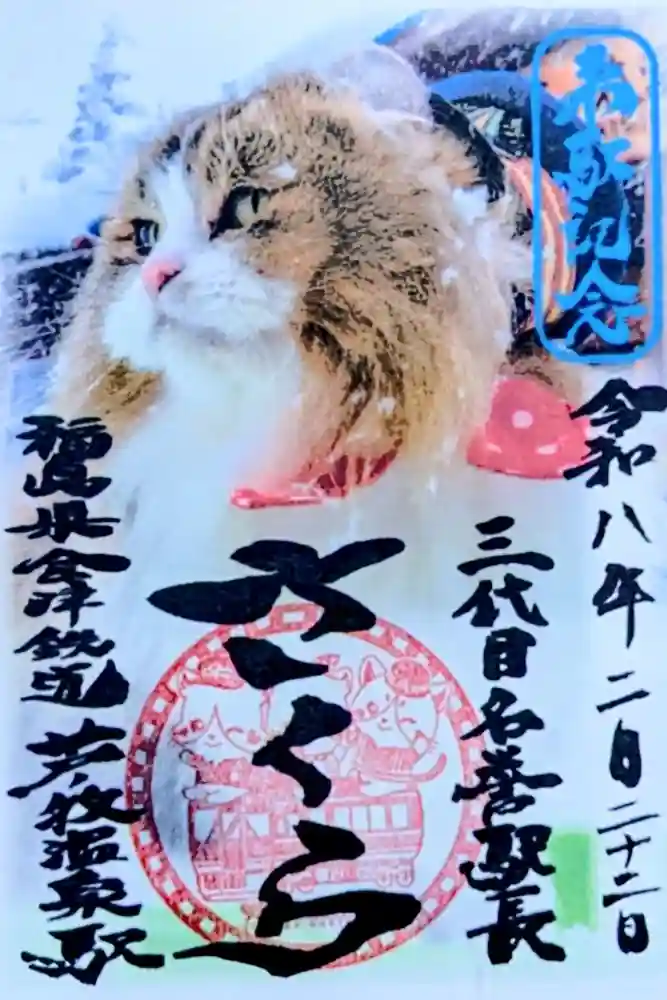 来駅記念
令和八年二月二十二日
三代目名誉駅長
さくら
福島県会津鉄道 芦ノ牧温泉駅